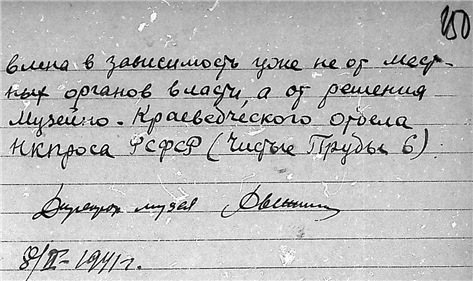 250
влена в зависимость уже не от мест-
ных органов власти, а от решения
Музейно-Краеведческого отдела
НКПроса РСФСР (Чистые Пруды 6).
Директор музея
8/II-1941г.